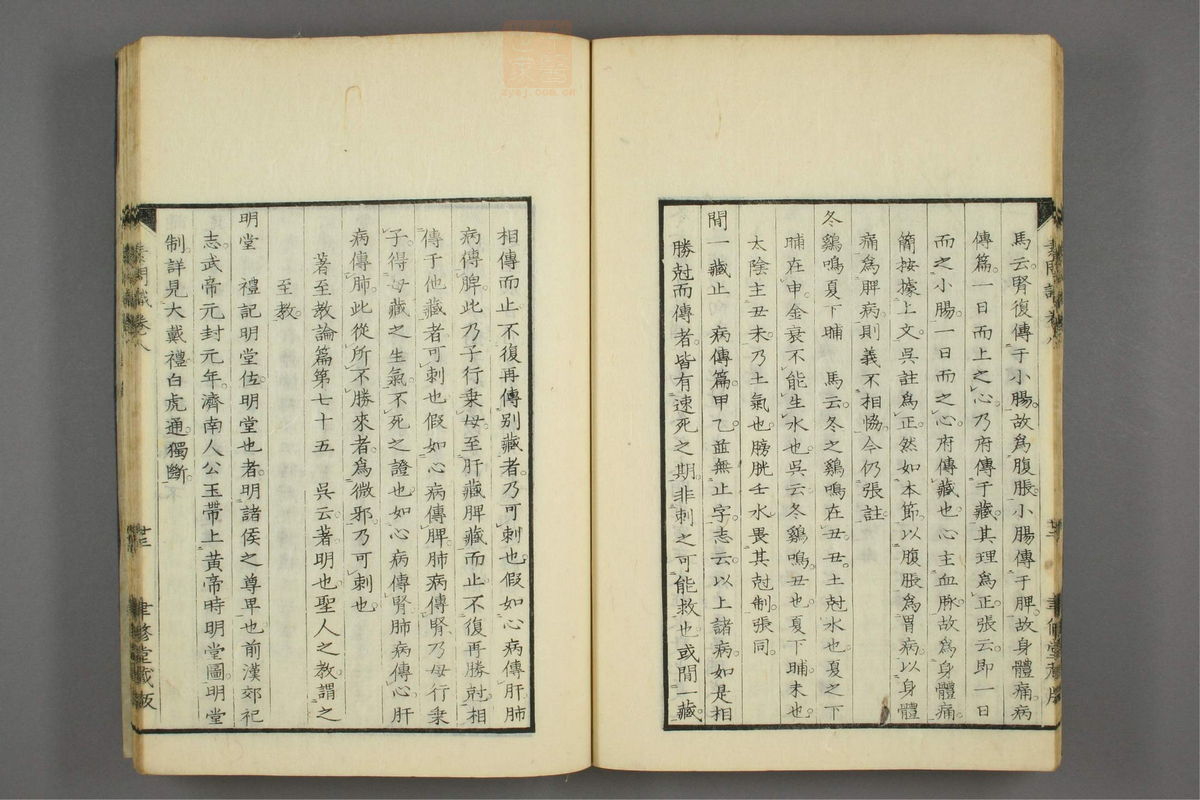 馬云腎復傳于小腸故爲腹脹小腸傳于脾故身體痛病
傳篇一日而上之心乃府傳于藏其理爲正張云即一日
而之小腸一日而之心府傳藏也心主血脉故爲身體痛
簡按據上文吳註爲正然如本節以腹脹爲胃病以身體
痛爲脾病則義不相恊今仍張註
冬鷄鳴夏下晡 馬云冬之鷄鳴在丑丑土尅水也夏之下
晡在申金衰不能生水也吳云冬鷄鳴丑也夏下晡未也
太陰主丑未乃土氣也膀胱壬水畏其尅制張同
間一藏止 病傳篇甲乙並無止字志云以上諸病如是相
勝尅而傳者皆有速死之期非刺之可能救也或間一藏
相傳而止不復再傳别藏者乃可刺也假如心病傳肝肺
病傳脾此乃子行乗母至肝藏脾藏而止不復再勝尅相
傳于他藏者可刺也假如心病傳脾肺病傳腎乃母行乗
子得母藏之生氣不死之證也如心病傳腎肺病傳心肝
病傳肺此從所不勝來者爲微邪乃可刺也
著至教論篇第七十五 吳云著明也聖人之教謂之
至教
明堂 禮記明堂位明堂也者明諸侯之尊卑也前漢郊祀
志武帝元封元年濟南人公玉帶上黄帝時明堂圖明堂
制詳見大戴禮白虎通獨斷
素問識 卷八
廿三
聿修堂藏版